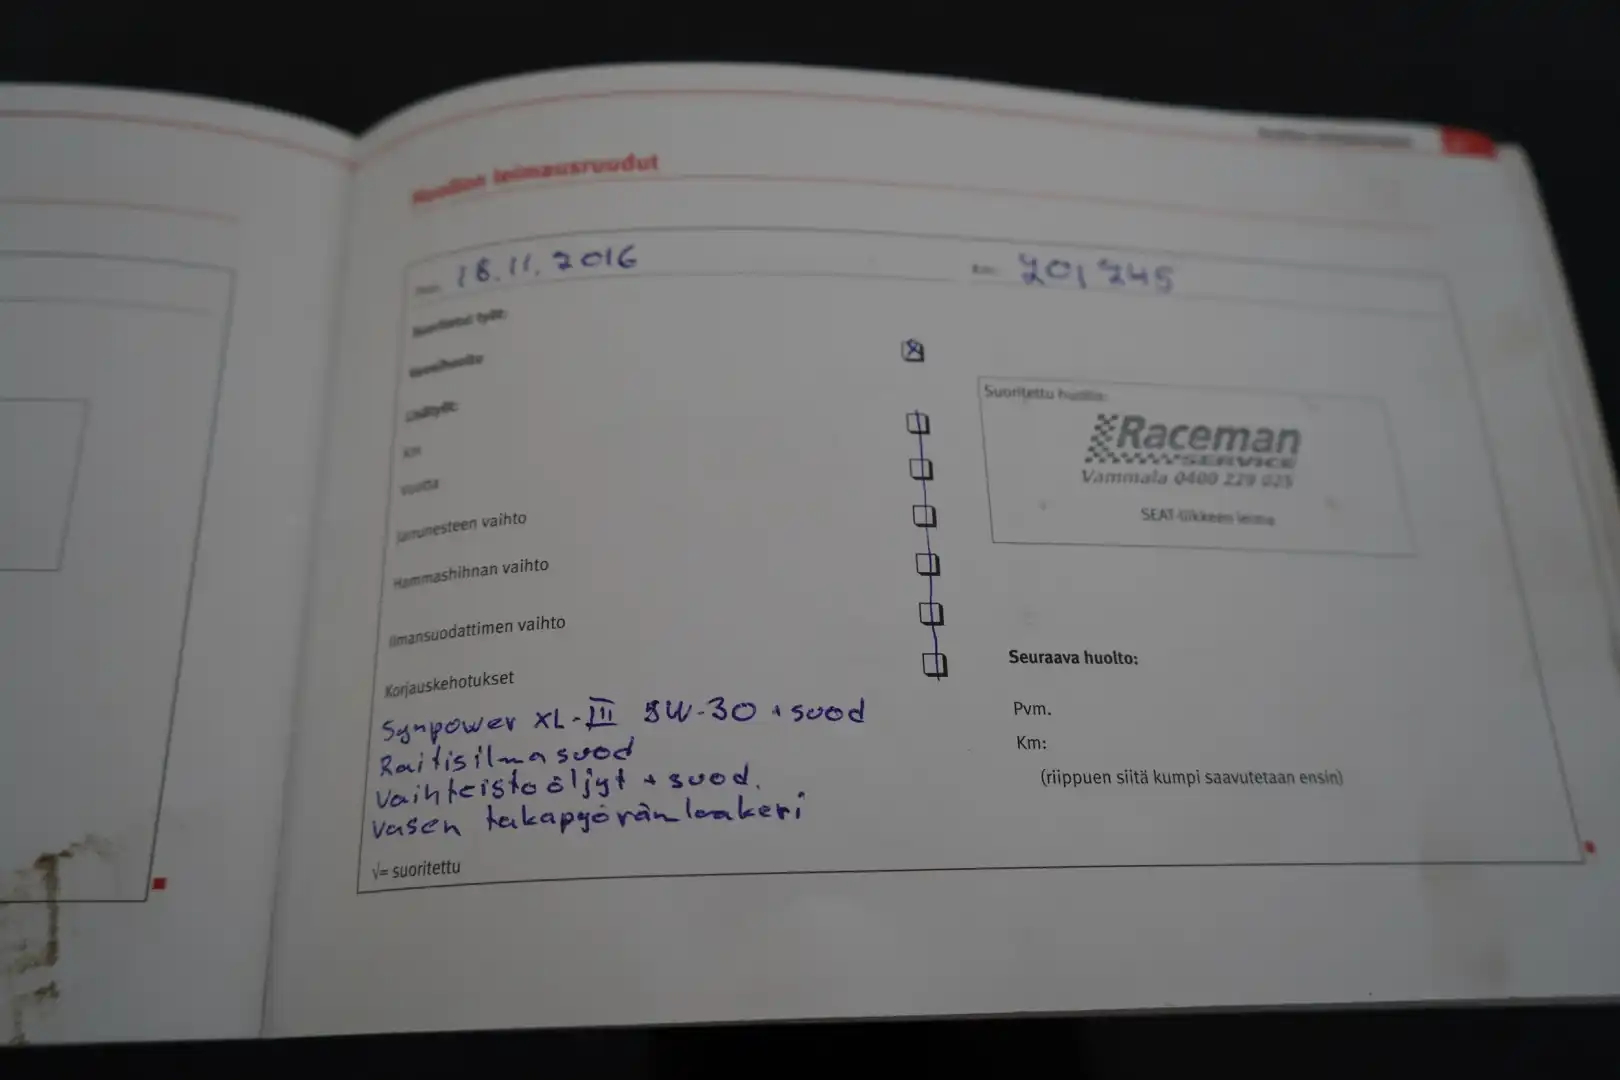 Huollon leimausruudut
18.11.2016
Km: 201 245
Suoritetut työt:
Vuosihuolto
Lisätyöt:
Km
Vuotta
Jarrunesteen vaihto
Hammashihnan vaihto
Ilmansuodattimen vaihto
Korjauskehotukset
Synpower XL-III 5W-30 + suod
Raitisilmasuod
Vaihteistoöljyt + suod.
Vasen takapyöränlaakeri
√= suoritettu
Suoritettu huolto:
Raceman
SERVICE
Vammala 0400 229 025
SEAT-liikkeen leima
Seuraava huolto:
Pvm.
Km:
(riippuen siitä kumpi saavutetaan ensin)